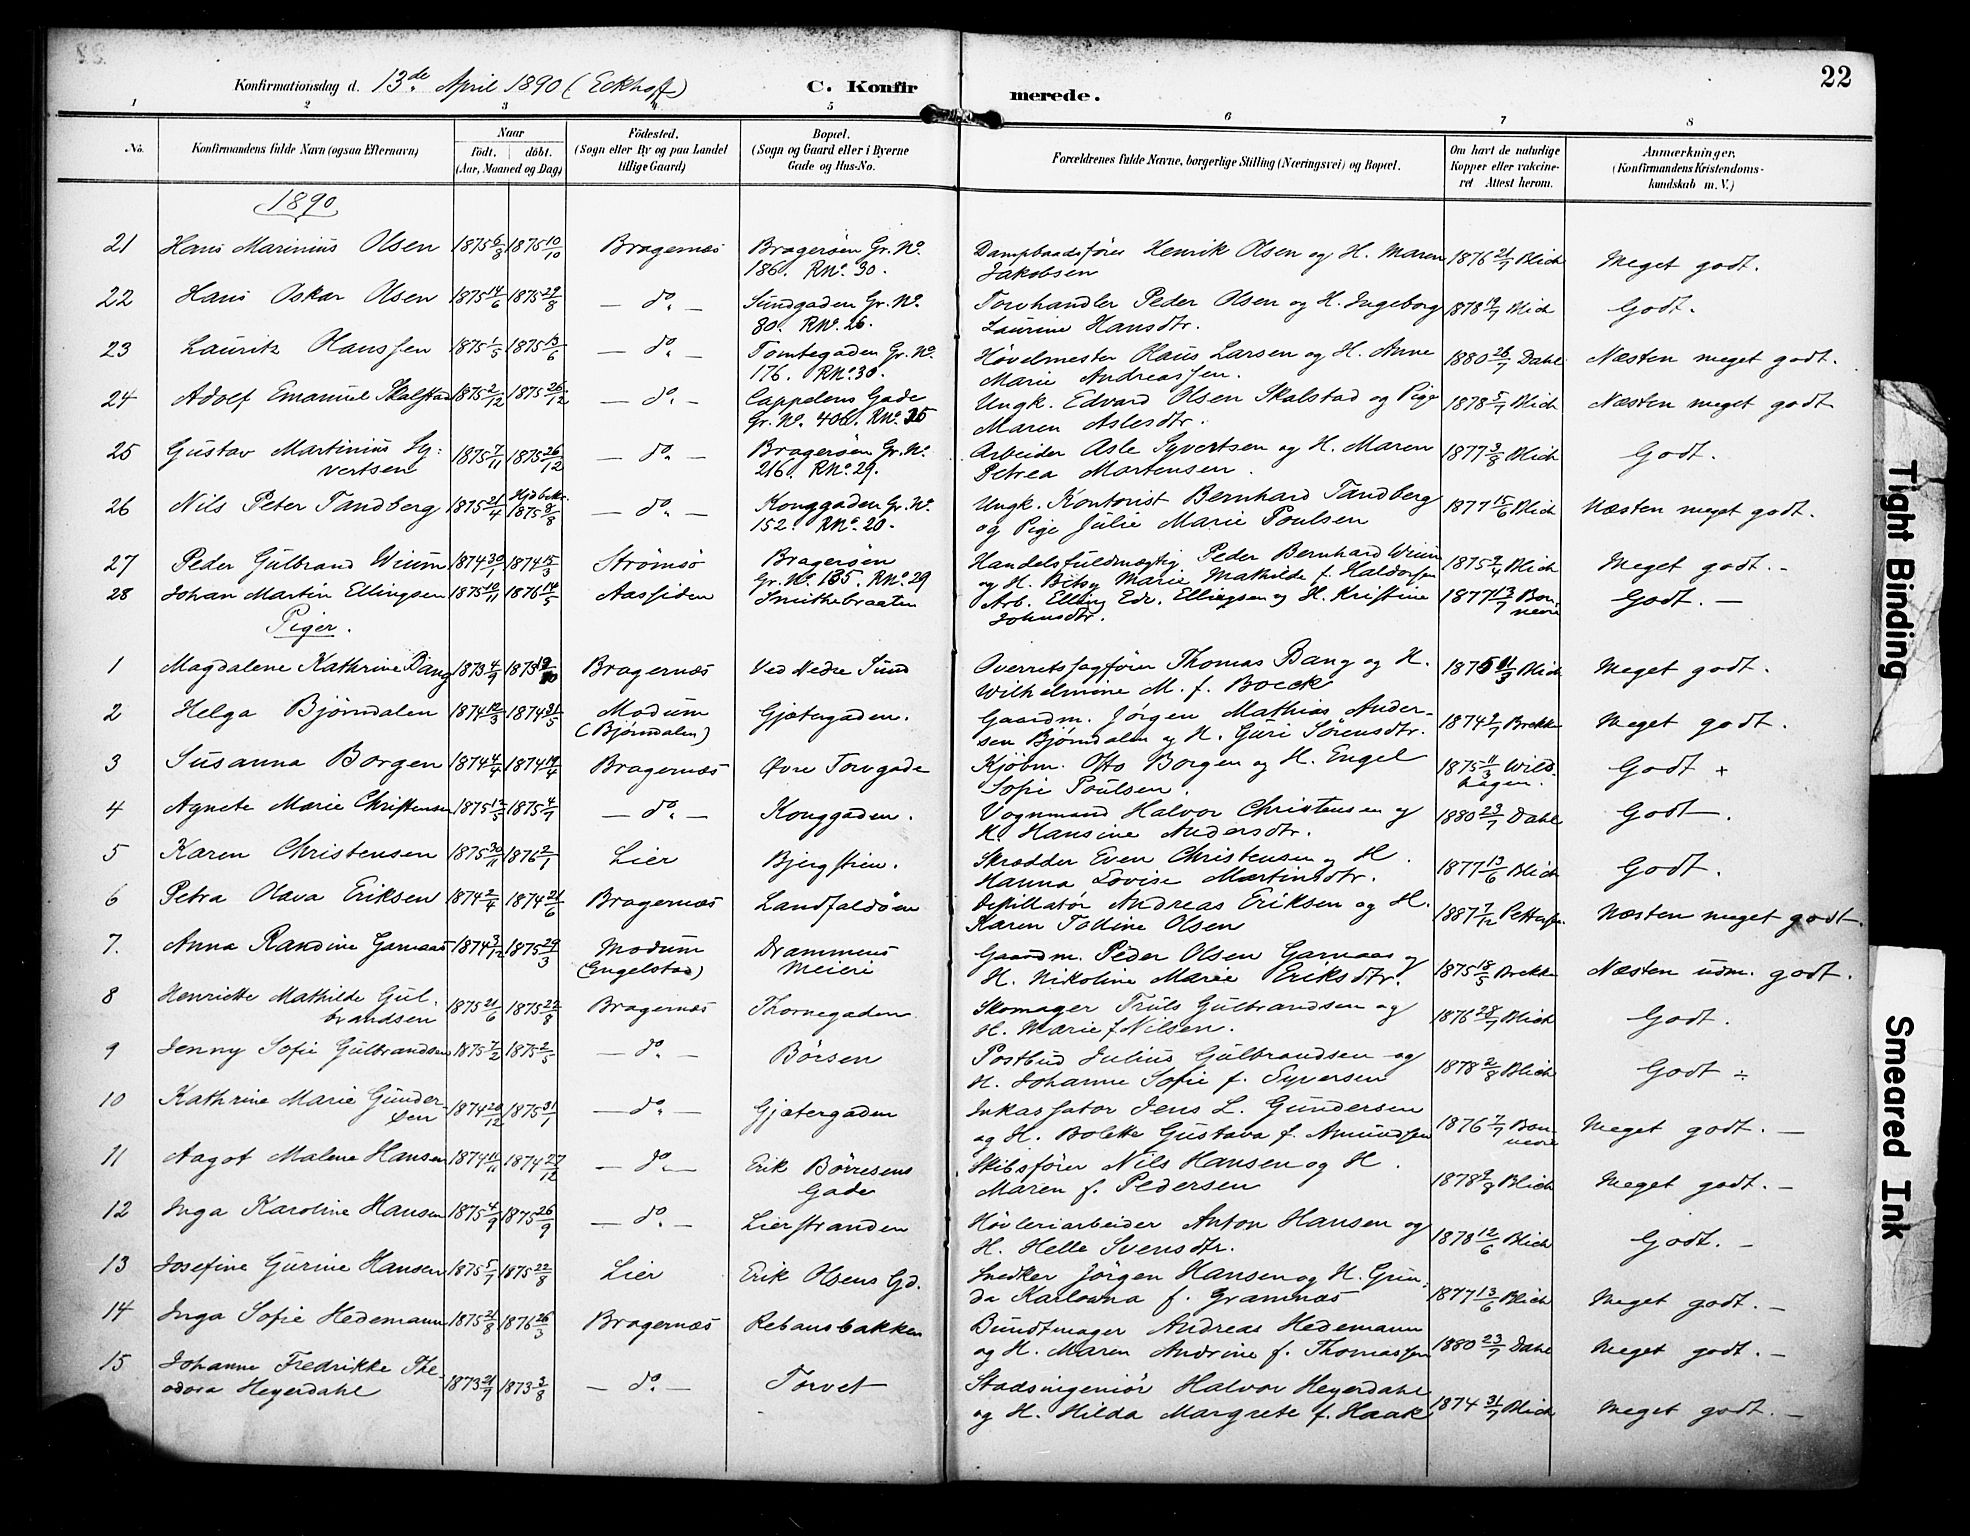 Konfirmationsdag d. 13de April 1890 (Eckhoff)
C. Konfirmerede.
22
1 2 3 4 5 6 7 8
No.
Konfirmandens fulde Navn (ogsaa Efternavn)
Naar
födt. döbt.
(Aar, Maaned og Dag)
Födested.
(Sogn eller By og paa Landet
tillige Gaard)
Bopæl.
(Sogn og Gaard eller i Byerne
Gade og Hus-No.
Forældrenes fulde Navne, borgerlige Stilling (Næringsvei) og Bopæl.
Om havt de naturlige
Kopper eller vakcine-
ret Attest herom.
Anmærkninger,
(Konfirmandens Kristendoms-
kundskab m. V.)
1890
21 Hans Marinius Olsen 1875 6/8 1875 10/10 Bragernæs Bragerøen Gr. No. Dampbaadsfører Henrik Olsen og H. Maren 1876 21/7 Blich Meget godt.
186. RNo. 30. Jakobsen
22 Hans Oskar Olsen 1875 14/6 1875 29/8 — do. — Sundgaden Gr. No. Torvhandler Peder Olsen og H. Ingeborg 1878 19/7 Blich Godt.
80. RNo. 26. Laurine Hansdtr.
23 Lauritz Olaussen 1875 1/5 1875 13/6 — do. — Tomtegaden Gr. No. Høvelmester Olaus Larsen og H. Anne 1880 26/7 Dahl Næsten meget godt.
176. RNo. 30. Marie Andreassen.
24 Adolf Emanuel Skalstad 1875 2/12 1875 26/12 — do. — Cappelens Gade Ungk. Edvard Olsen Skalstad og Pige 1878 5/7 Blich Næsten meget godt
Gr. No. 406. RNo. 25 Maren Aslesdtr.
25 Gustav Martinius Sy- 1875 7/11 1875 26/12 — do. — Bragerøen Gr. No. Arbeider Asle Syvertsen og H. Maren 1877 3/8 Blich Godt.
vertsen 216. RNo. 29. Petrea Martensen.
26 Nils Peter Tandberg 1875 21/4 Hjdbekr. 1875 8/8 — do. — Konggaden Gr. No. Ungk. Kontorist Bernhard Tandberg 1877 15/6 Blich Næsten meget godt.
152. RNo. 20. og Pige Julie Marie Poulsen
27 Peder Gulbrand Wium 1874 30/1 1874 15/3 Strømsø Bragerøen Handelsfuldmægtig Peder Bernhard Wium 1875 9/4 Blich Meget godt.-
Gr. No. 135. RNo. 29 og H. Betsy Marie Mathilde f. Haldorsen
28 Johan Martin Ellingsen 1875 10/11 1876 14/5 Aassiden Smithebraaten Arb. Elling Edv. Ellingsen og H. Kristine 1877 13/7 Bonnevie Godt. —
Johnsdtr.
Piger.
1 Magdalene Kathrine Bang 1873 4/9 1873 19/10 Bragernæs Ved Nedre Sund Overretssagfører Thomas Bang og H. 1875 11/3 Blich Meget godt.
Wilhelmine M. f. Boeck
2 Helga Bjørndalen 1874 12/3 1874 31/5 Modum Gjetergaden. Gaardm. Jørgen Mathias Ander- 1874 2/7 Brekke Meget godt.
(Bjørndalen) sen Bjørndalen og H. Guri Sørensdtr.
3 Susanna Borgen 1874 4/4 1874 19/4 Bragernæs Øvre Torvgade Kjøbm. Otto Borgen og H. Engel 1875 11/3 Wildhagen. Godt +
Sofie Poulsen.
4 Agnete Marie Christensen 1875 12/5 1875 4/7 — do. — Konggaden. Vognmand Halvor Christensen og 1880 23/7 Dahl Godt.
H. Hansine Andersdtr.
5 Karen Christensen 1875 30/11 1876 2/1 Lier Bjergstien. Skrædder Even Christensen og H. 1877 13/6 Blich Godt.
Hanna Lovise Martinsdtr.
6 Petra Olava Eriksen 1874 2/4 1874 21/6 Bragernæs Landfaldøen Destillatør Andreas Eriksen og H. 1887 7/12 Pettersen Næsten meget godt.
Karen Tolline Olsen
7. Anna Randine Garnaas 1874 3/12 1875 29/3 Modum Drammens Gaardm. Peder Olsen Garnaas og 1875 18/5 Brekke Næsten udm. godt.
(Engelstad) Meieri H. Nikoline Marie Eriksdtr.
8 Henriette Mathilde Gul- 1875 21/6 1875 22/8 Bragernæs Thornegaden Skomager Truls Gulbrandsen og 1876 28/7 Blich Godt.
brandsen H. Marie f. Nilsen.
9 Jenny Sofie Gulbrandsen 1875 7/2 1875 2/5 — do. — Børsen Postbud Julius Gulbrandsen og 1878 2/8 Blich Godt ÷
H. Johanne Sofie f. Syversen
10 Kathrine Marie Gunder- 1874 20/12 1875 31/1 — do. — Gjetergaden Inkassator Jens L. Gundersen 1876 7/7 Bonnevie Meget godt. —
sen og H. Bolette Gustava f. Amundsen
11 Aagot Malene Hansen 1874 11/11 1874 27/12 — do. — Erik Børresens Skibsfører Nils Hansen og H. 1878 9/8 Blich Meget godt. -
Gade Maren f. Pedersen
12 Inga Karoline Hansen 1875 4/9 1875 26/9 — do. — Lierstranden Høvleriarbeider Anton Hansen og 1878 12/6 Blich Godt. -
H. Helle Svensdtr.
13 Josefine Gurine Hansen 1875 5/7 1875 22/8 Lier Erik Olsens Gd. Snedker Jørgen Hansen og H. Grun- 1877 13/6 Blich Meget godt. -
da Karlovna f. Gramnæs
14 Inga Sofie Hedemann 1875 21/8 1876 26/3 Bragernæs Rebansbakken Bundtmager Andreas Hedemann 1880 23/7 Dahl Meget godt. -
og H. Maren Andrine f. Thomassen
15 Johanne Fredrikke The- 1873 21/7 1873 3/8 — do. — Torvet Stadsingeniør Halvor Heyerdahl 1874 31/7 Blich Meget godt. -
odora Heyerdahl og H. Hilda Margrete f. Haak
Tight Binding
Smeared Ink